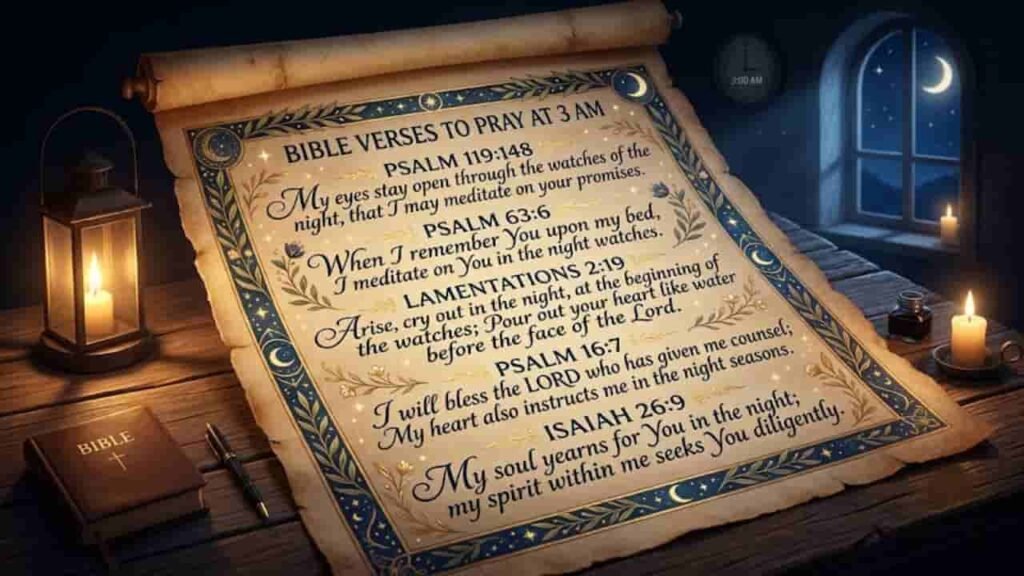 3:00 AM
BIBLE VERSES TO PRAY AT 3 AM
PSALM 119:148
My eyes stay open through the watches of the
night, that I may meditate on your promises.
PSALM 63:6
When I remember You upon my bed,
I meditate on You in the night watches.
LAMENTATIONS 2:19
Arise, cry out in the night, at the beginning of
the watches; Pour out your heart like water
before the face of the Lord.
PSALM 16:7
I will bless the LORD who has given me counsel;
My heart also instructs me in the night seasons.
ISAIAH 26:9
My soul yearns for You in the night;
my spirit within me seeks You diligently.
BIBLE